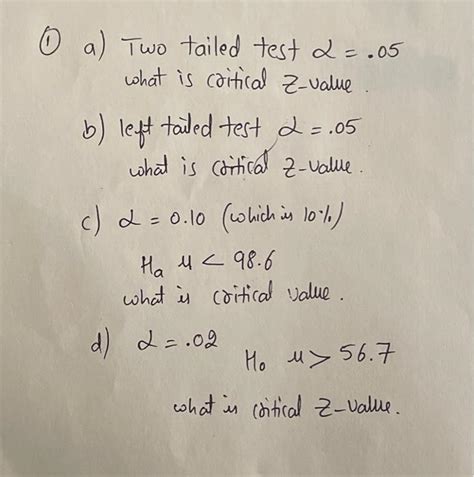 ① a) Two tailed test α = .05
what is critical Z-value.
b) left tailed test α = .05
what is critical Z-value.
c) α = 0.10 (which is 10%)
Ha μ < 98.6
what is critical value.
d) α = .02
H₀ μ > 56.7
what is critical Z-value.